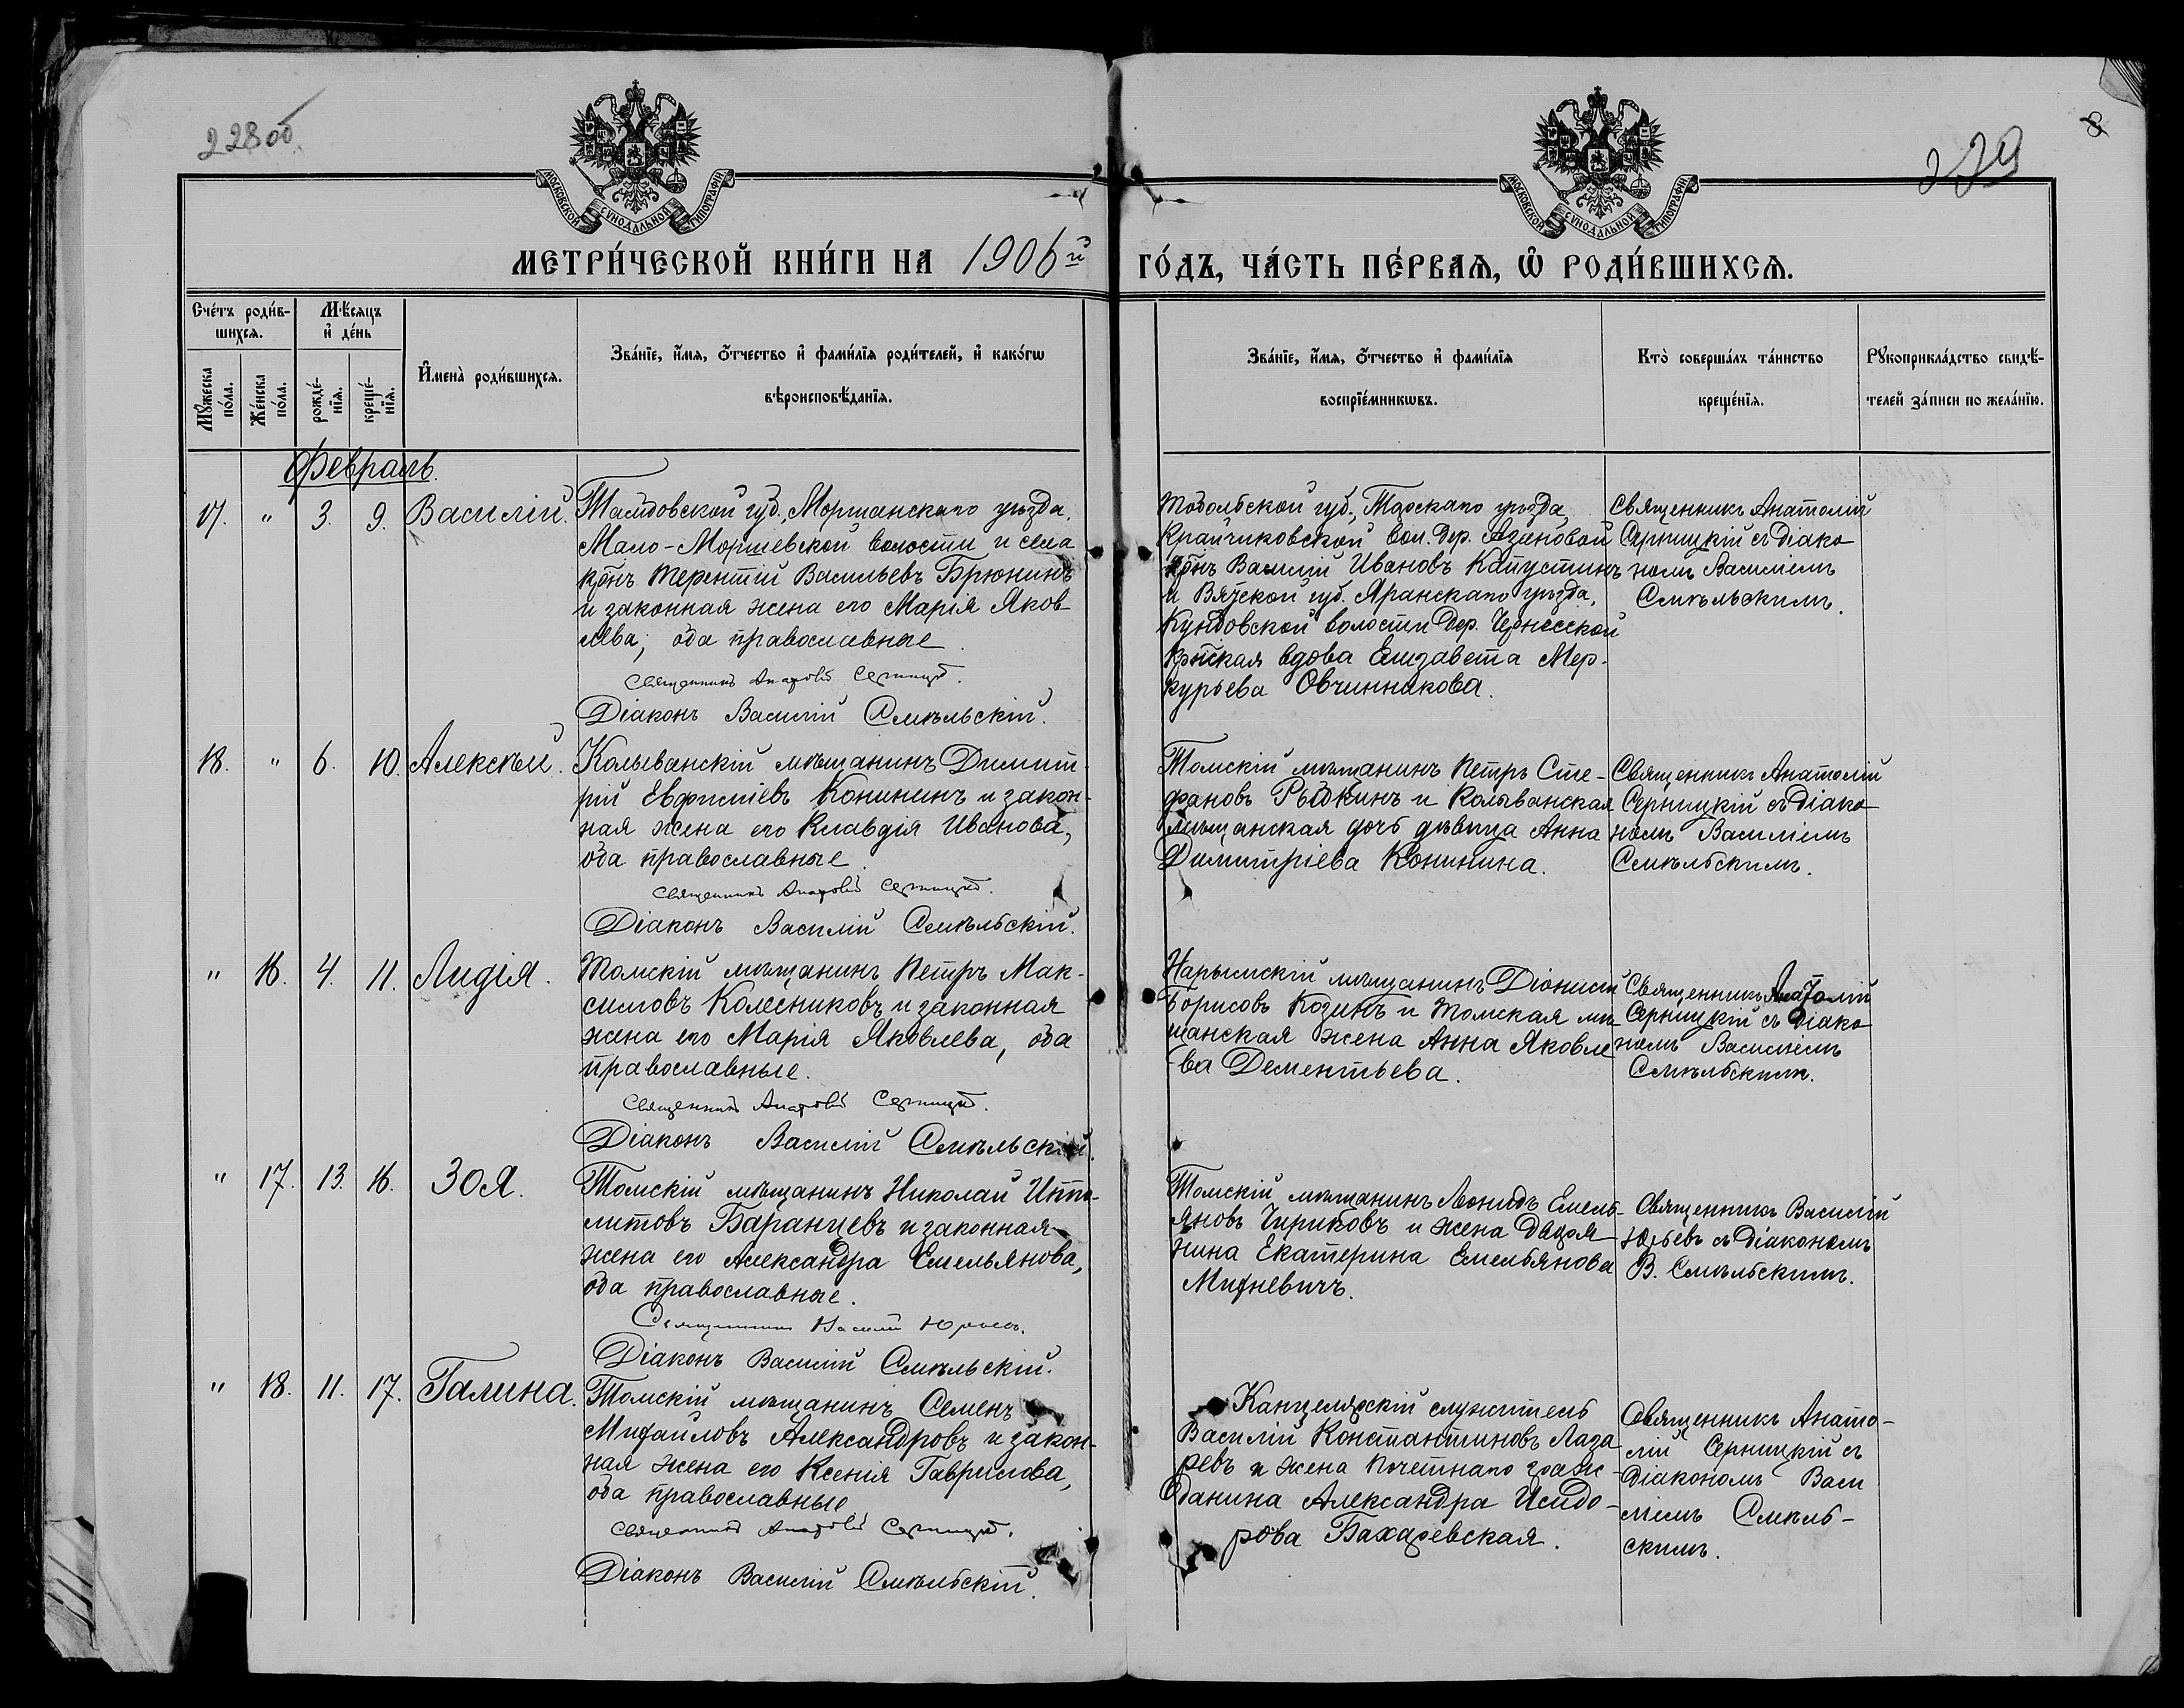 228 об.
229
8
МОСКОВСКОЙ СѴНОДАЛЬНОЙ ТИПОГРАФІИ
МОСКОВСКОЙ СѴНОДАЛЬНОЙ ТИПОГРАФІИ
МЕТРИ́ЧЕСКОЙ КНИ́ГИ НА 1906й
ГО́ДЪ, ЧА́СТЬ ПЕ́РВАѦ, Ѡ҆ РОДИ́ВШИХСѦ.
Сче́тъ роди́в-
шихсѧ.
Мѣ́сѧцъ
и҆ де́нь
Мꙋ́жеска
по́ла.
Же́нска
по́ла.
рожде́-
нїѧ.
креще́-
нїѧ.
И҆мена̀ роди́вшихсѧ.
Зва́нїе, и҆́мѧ, ѻ҆́тчество и҆ фами́лїѧ роди́телей, и҆ како́гѡ
вѣроисповѣ́данїѧ.
Зва́нїе, и҆́мѧ, ѻ҆́тчество и҆ фами́лїѧ
воспрїе́мникѡвъ.
Кто̀ соверша́лъ та́инство
креще́нїѧ.
Рꙋкоприкла́дство свидѣ́-
телей за́писи по жела́нїю.
Февраль.
17. " 3. 9. Василій.
Тамбовской губ., Моршанскаго уѣзда,
Мало-Моршевской волости и села
крнъ Терентій Васильевъ Брюнинъ
и законная жена его Марія Яков
лева, оба православные.
Священникъ Анатолій Серницкій.
Діаконъ Василій Смѣльскій.
Тобольской губ., Тарскаго уѣзда,
Крайчиковской вол. дер. Азановой
крнъ Василій Ивановъ Капустинъ
и Вятской губ. Яранскаго уѣзда,
волости дер.
вдова Елизавета Мер-
курьева Овчинникова.
Священникъ Анатолій
Серницкій съ діако
номъ Василіемъ
Смѣльскимъ.
18. " 6. 10. Алексѣй.
Колыванскій мѣщанинъ Димит-
рій Евфиміевъ Конининъ и закон-
ная жена его Клавдія Иванова,
оба православные.
Священникъ Анатолій Серницкій.
Діаконъ Василій Смѣльскій.
Томскій мѣщанинъ Петръ Сте-
фановъ Рыбкинъ и Колыванская
мѣщанская дочь дѣвица Анна
Димитріева Конинина.
Священникъ Анатолій
Серницкій съ діако
номъ Василіемъ
Смѣльскимъ.
" 16. 4. 11. Лидія.
Томскій мѣщанинъ Петръ Мак-
симовъ Колесниковъ и законная
жена его Марія Яковлева, оба
православные.
Священникъ Анатолій Серницкій.
Діаконъ Василій Смѣльскій.
Нарымскій мѣщанинъ Діонисій
Борисовъ Козинъ и томская мѣ-
щанская жена Анна Яковле
ва Дементьева.
Священникъ Анатолій
Серницкій съ діако
номъ Василіемъ
Смѣльскимъ.
" 17. 13. 16. Зоя.
Томскій мѣщанинъ Николай Иппо-
литовъ Баранцевъ и законная
жена его Александра Емельянова,
оба православные.
Священникъ Василій Юрьевъ.
Діаконъ Василій Смѣльскій.
Томскій мѣщанинъ Леонидъ Емель-
яновъ Чириковъ и жена дворя
нина Екатерина Емельянова
Михневичъ.
Священникъ Василій
Юрьевъ съ діакономъ
В. Смѣльскимъ.
" 18. 11. 17. Галина.
Томскій мѣщанинъ Семенъ
Михайловъ Александровъ и закон-
ная жена его Ксенія Гаврилова,
оба православные
Священникъ Анатолій Серницкій.
Діаконъ Василій Смѣльскій.
Канцелярскій служитель
Василій Константиновъ Лаза
ревъ и жена почетнаго граж-
данина Александра Исидо-
рова Бахаревская.
Священникъ Анато-
лій Серницкій съ
діакономъ Васи
ліемъ Смѣль-
скимъ.